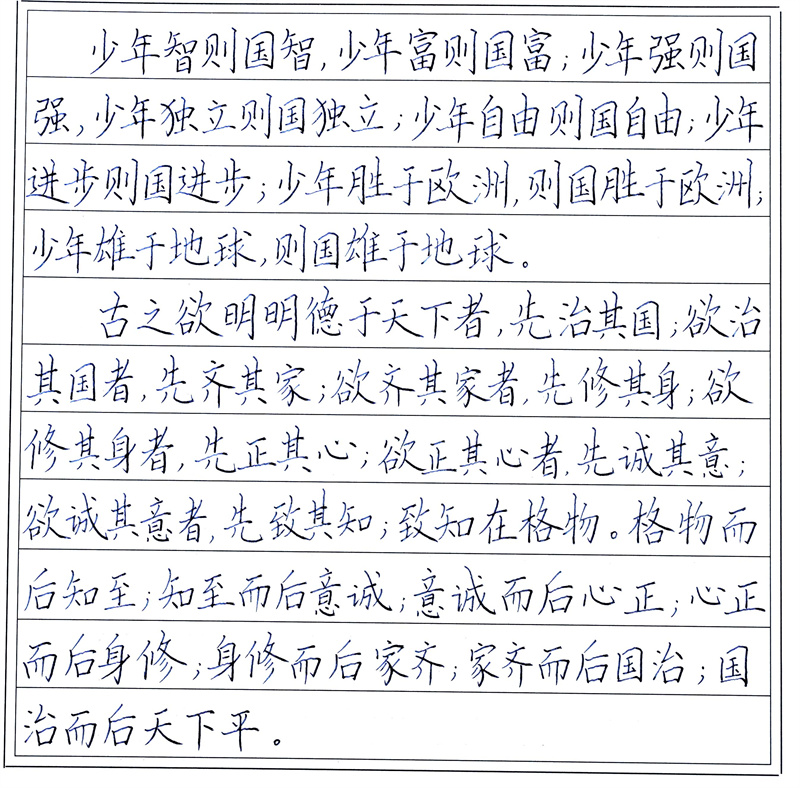 少年智则国智,少年富则国富;少年强则国
强,少年独立则国独立;少年自由则国自由;少年
进步则国进步;少年胜于欧洲,则国胜于欧洲;
少年雄于地球,则国雄于地球。
古之欲明明德于天下者,先治其国;欲治
其国者,先齐其家;欲齐其家者,先修其身;欲
修其身者,先正其心;欲正其心者,先诚其意;
欲诚其意者,先致其知;致知在格物。格物而
后知至;知至而后意诚;意诚而后心正;心正
而后身修;身修而后家齐;家齐而后国治;国
治而后天下平。